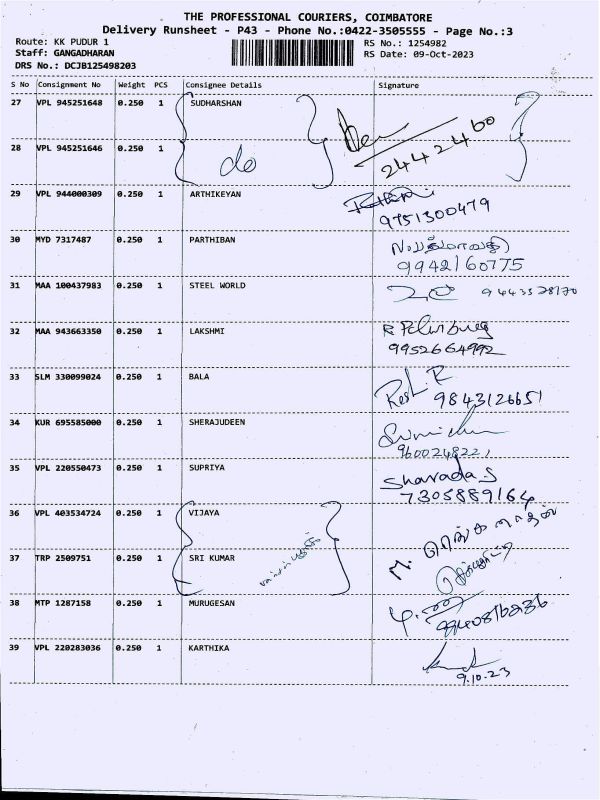 THE PROFESSIONAL COURIERS, COIMBATORE
Delivery Runsheet - P43 - Phone No.:0422-3505555 - Page No.:3
Route: KK PUDUR 1
RS No.: 1254982
Staff: GANGADHARAN
RS Date: 09-Oct-2023
DRS No.: DCJB125498203
S No Consignment No Weight PCS Consignee Details Signature
27 VPL 945251648 0.250 1 SUDHARSHAN
2442460
28 VPL 945251646 0.250 1 do
29 VPL 944000309 0.250 1 ARTHIKEYAN
9751300479
30 MYD 7317487 0.250 1 PARTHIBAN
9942160775
31 MAA 100437983 0.250 1 STEEL WORLD
32 MAA 943663350 0.250 1 LAKSHMI
9952664992
33 SLM 330099024 0.250 1 BALA
9843126651
34 KUR 695585000 0.250 1 SHERAJUDEEN
9600248221
35 VPL 220550473 0.250 1 SUPRIYA Sharada.S
7305889164
36 VPL 403534724 0.250 1 VIJAYA
37 TRP 2509751 0.250 1 SRI KUMAR
38 MTP 1287158 0.250 1 MURUGESAN
39 VPL 220283036 0.250 1 KARTHIKA
9.10.23